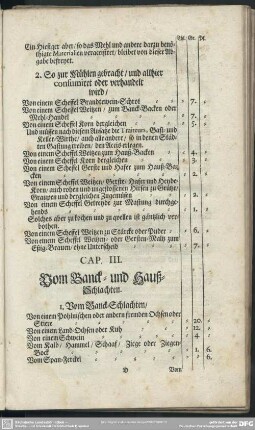 Thl. Gr. Pf.
Ein Hiesiger aber/ so das Mehl und andere darzu benö-
thigte Materialien veraccisiret/ bleibet von dieser Ab-
gabe befreyet.
2. So zur Mühlen gebracht/ und allhier
consumiret oder verhandelt
wird/
Von einem Scheffel Brandtewein-Schrot 7.
Von einem Scheffel Weitzen/ zum Banck-Backen oder
Mehl-Handel 7.
Von einem Scheffel Korn dergleichen 5.
Und müssen nach diesen Ansätze die Traiteurs, Gast- und
Keller-Wirthe/ auch alle andere/ so in denen Städ-
ten Gastung treiben/ den Accis erlegen.
Von einem Scheffel Weitzen zum Hauß-Backen 4.
Von einem Scheffel Korn dergleichen 3.
Von einem Scheffel Gerste und Hafer zum Hauß-Ba-
cken 2.
Von einem Scheffel Weitzen/ Gerste/ Hafer und Heyde-
Korn/ auch rohen und ungestossenen Hirsen zu Grütze/
Graupen und dergleichen Zugemüsen 2.
Von einem Scheffel Getreyde zur Mastung durchge-
hends 1.
Solches aber zu kochen und zu quellen ist gäntzlich ver-
bothen.
Von einem Scheffel Weitzen zu Stärcke oder Puder 6.
Von einem Scheffel Weitzen- oder Gersten-Maltz zum
Eßig-Brauen/ ohne Unterscheid 7.
CAP. III.
Vom Banck- und Hauß-
Schlachten.
1. Vom Banck-Schlachten/
Von einen Pohlnischen oder andern fremden Ochsen oder
Stiere 20.
Von einem Land-Ochsen oder Kuh 12.
Von einem Schwein 4.
Vom Kalb/ Hammel/ Schaaf/ Ziege oder Ziegen-
Bock 1. 6.
Vom Span-Ferckel 6.
D Vom